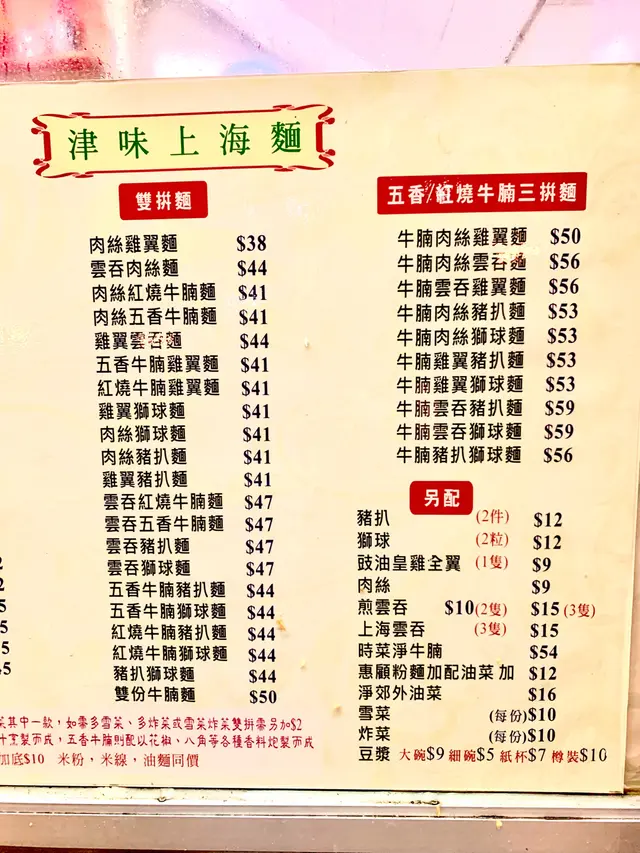 津味上海麵
雙拼麵
肉絲雞翼麵 $38
雲吞肉絲麵 $44
肉絲紅燒牛腩麵 $41
肉絲五香牛腩麵 $41
雞翼雲吞麵 $44
五香牛腩雞翼麵 $41
紅燒牛腩雞翼麵 $41
雞翼獅球麵 $41
肉絲獅球麵 $41
肉絲豬扒麵 $41
雞翼豬扒麵 $41
雲吞紅燒牛腩麵 $47
雲吞五香牛腩麵 $47
雲吞豬扒麵 $47
雲吞獅球麵 $47
五香牛腩豬扒麵 $44
五香牛腩獅球麵 $44
紅燒牛腩豬扒麵 $44
紅燒牛腩獅球麵 $44
豬扒獅球麵 $44
雙份牛腩麵 $50
菜其中一款，如需多雪菜、多炸菜或雪菜炸菜雙拼需另加$2
汁熬製而成，五香牛腩則配以花椒、八角等各種香料炮製而成
加底$10 米粉，米線，油麵同價
五香/紅燒牛腩三拼麵
牛腩肉絲雞翼麵 $50
牛腩肉絲雲吞麵 $56
牛腩雲吞雞翼麵 $56
牛腩肉絲豬扒麵 $53
牛腩肉絲獅球麵 $53
牛腩雞翼豬扒麵 $53
牛腩雞翼獅球麵 $53
牛腩雲吞豬扒麵 $59
牛腩雲吞獅球麵 $59
牛腩豬扒獅球麵 $56
另配
豬扒 (2件) $12
獅球 (2粒) $12
豉油皇雞全翼 (1隻) $9
肉絲 $9
煎雲吞 $10(2隻) $15(3隻)
上海雲吞 (3隻) $15
時菜淨牛腩 $54
惠顧粉麵加配油菜 加 $12
淨郊外油菜 $16
雪菜 (每份)$10
炸菜 (每份)$10
豆漿 大碗$9 細碗$5 紙杯$7 樽裝$10